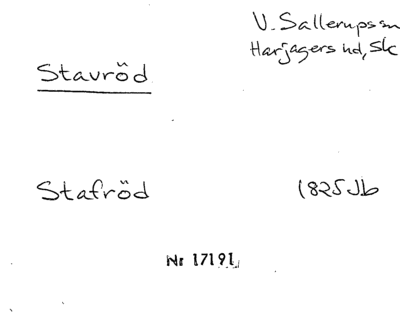 V. Sallerups sn
Harjagers hd, Sk
Stavröd
Stafröd 1825 Jb
Nr 17191